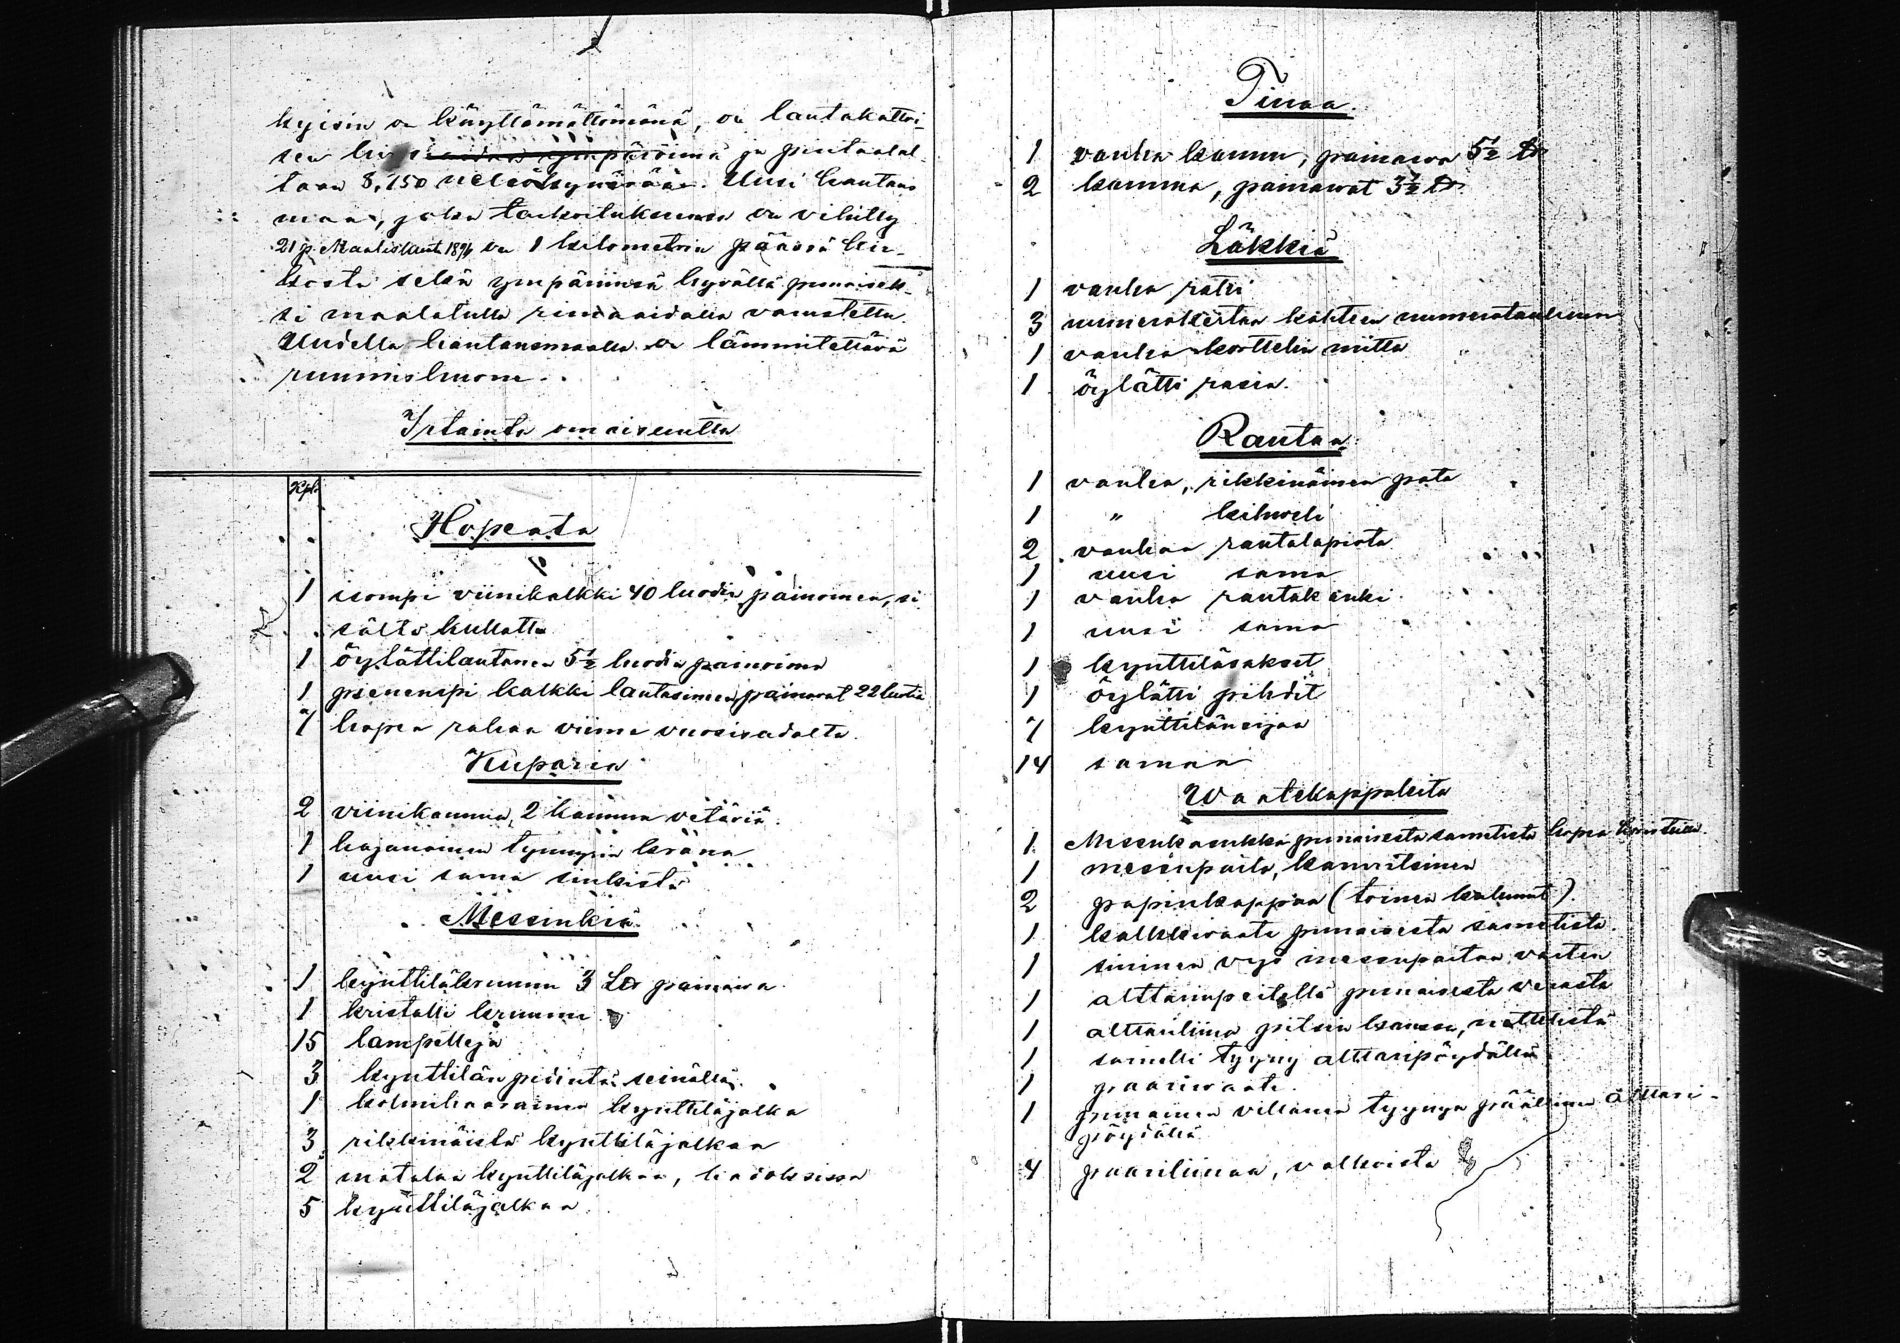 kyisin on käyttämättömänä, on lautakattoi-
sen ympäröimä ja pintaalal-
taan 8,150 neliökyynärää. Uusi hautaus
maa, joka tarkoitukseensa on vihitty
21 p. Maaliskuuta 1896 on 1 kilometrin päässä kir-
kosta sekä ympärinsä hyvällä punaisek-
si maalatulla rima aidalla varustettu.
Uudella hautausmaalla on lämmitettävä
ruumishuone.
Irtainta omaisuutta
Kpl.
Hopeata
1 isompi viinikalkki 40 luodin painoinen, si
sältä kullattu
1 öylättilautanen 5½ luodin painoima
1 pienempi kalkki lautasineen, painavat 22 luotia
7 hopea rahaa viime vuosisadalta.
Kuparia
2 viinikannua, 2 kannun vetäviä.
1 hajanainen tynnyrin kräna
1 uusi sama sinkistä
Messinkiä
1 kynttiläkruunu 3 L℔ painava
1 kristalli kruunu
15 lampetteja
3 kynttilän pidintä seinällä.
1 kolmihaarainen kynttiläjalka
3 rikkinäistä kynttiläjalkaa
2 matalaa kynttiläjalkaa, hajoksissa
5 kynttiläjalkaa.
Tinaa.
1 vanha kannu, painawa 5½ ℔
2 kannua, painawat 3½ ℔
Läkkiä
1 vanha ratti
3 numerokertaa kahteen numerotauluun
1 vanha korttelin mitta
1 öylätti rasia.
Rautaa.
1 vanha, rikkinäinen pata
1 " kihweli
2 vanhaa rautalapiota
1 uusi sama
1 vanha rautakanki
1 uusi sama
1 kynttiläsakset
1 öylätti pihdit
7 kynttiläneijaa
14 samaa
Waatekappaleita
1 Messukasukka punaisesta sametista hopea koristeilla
1 messupaita, kamritsinen
2 papinkappaa (toinen kulunut).
1 kalkkiwaate punaisesta sametista.
1 sininen vyö messupaitaa varten
1 alttarinpeitellä punaisesta verasta
1 alttariliina pitsin kanssa, nettelistä
1 sametti tyyny alttaripöydällä
1 paariwaate.
1 punainen villainen tyynyn päällinen alttari-
pöydällä
4 paariliinaa, valkoista